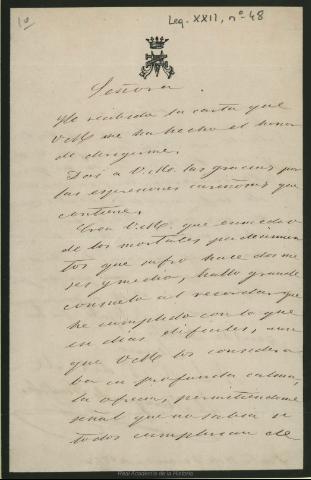 1º
Leg. XXII, nº 48
Señora
He recibido la carta que
V.M. me ha hecho el honor
de dirigirme.
Doi a V.M. las gracias por
las espresiones cariñosas que
contiene.
Crea V.M. que en medio
de los mortales padecimien
tos que sufro hace dos me
ses y medio, hallo grande
consuelo al recordar que
he cumplido con lo que
en dias dificiles, aun
que V.M. los considera
ba en profunda calma,
la ofreci, permitiendome
señal que no sabia si
todos cumplirian de
Real Academia de la Historia